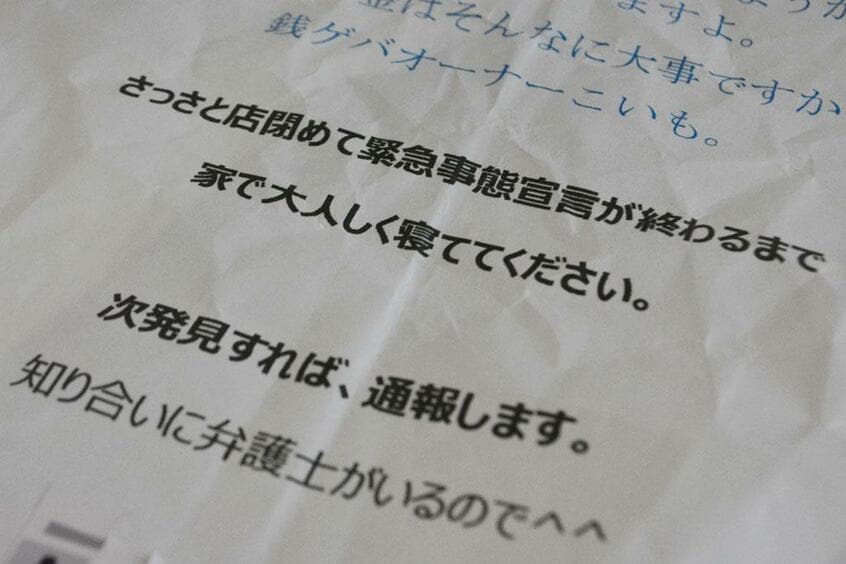 ますよ。
金はそんなに大事ですか
銭ゲバオーナーこいも。
さっさと店閉めて緊急事態宣言が終わるまで
家で大人しく寝ててください。
次発見すれば、通報します。
知り合いに弁護士がいるのでへへ